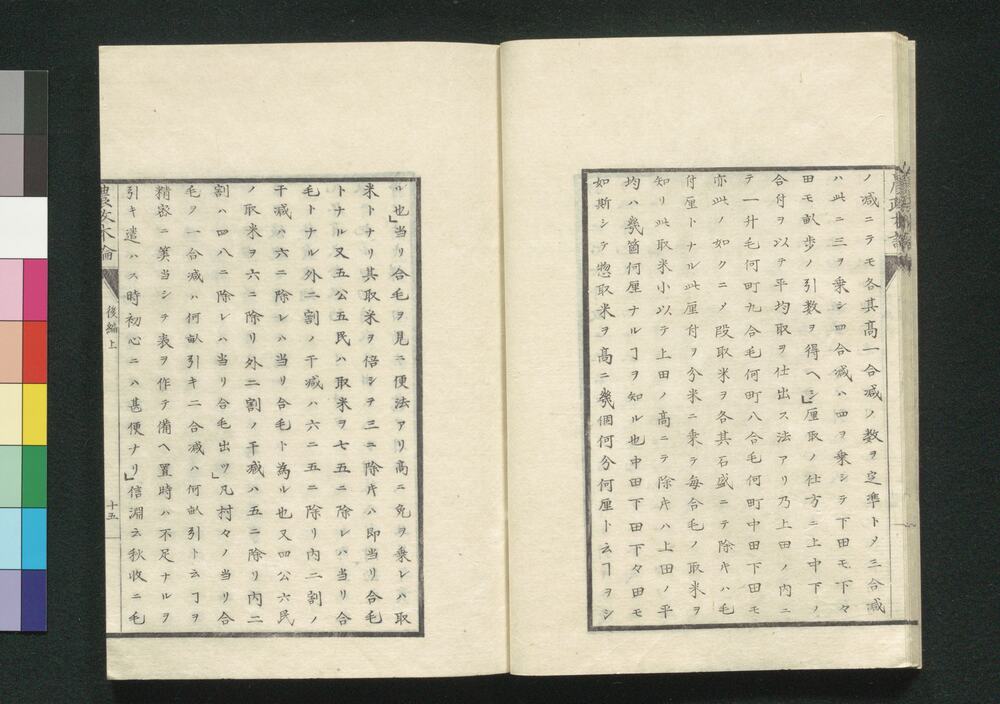 ノ減ニテモ各其高一合減ノ数ヲ定準トメ三合減
ハ此ニ三ヲ乗シ四合減ハ四ヲ乗シテ下田モ下々
田モ畝歩ノ引数ヲ得ヘシ」厘取ノ仕方ニ上中下ノ
合付ヲ以テ平均取ヲ仕出ス法アリ乃上田ノ内ニ
テ一升毛何町九合毛何町八合毛何町中田下田モ
亦此ノ如クニメ段取米ヲ各其石盛ニテ除キハ毛
付厘トナル此厘付ヲ分米ニ乗テ毎合毛ノ取米ヲ
知リ此取米小以テ上田ノ高ニテ除片ハ上田ノ平
均ハ幾箇何厘ナルヿヲ知ル也中田下田下々田モ
如斯シテ惣取米ヲ高ニ幾個何分何厘ト云ヿヲシ
ル也」当リ合毛ヲ見ニ便法アリ高ニ免ヲ乗レハ取
米トナリ其取米ヲ倍シヲ三ニ除片ハ即当リ合毛
トナル又五公五民ハ取米ヲ七五ニ除レハ当リ合
毛トナル外二割ノ干減ハ六二五ニ除リ内二割ノ
干減ハ六ニ除レハ当リ合毛ト為ル也又四公六民
ノ取米ヲ六ニ除リ外二割ノ干減ハ五ニ除リ内二
割ハ四八ニ除レハ当リ合毛出ツ」凡村々ノ当リ合
毛ヲ一合減ハ何畝引キ二合減ハ何畝引ト云ヿヲ
精密ニ算当シテ表ヲ作テ備ヘ置時ハ不足ナルヲ
引キ遣ハス時初心ニハ甚便ナリ」信淵云秋収ニ毛
農政本論
後編上
十五